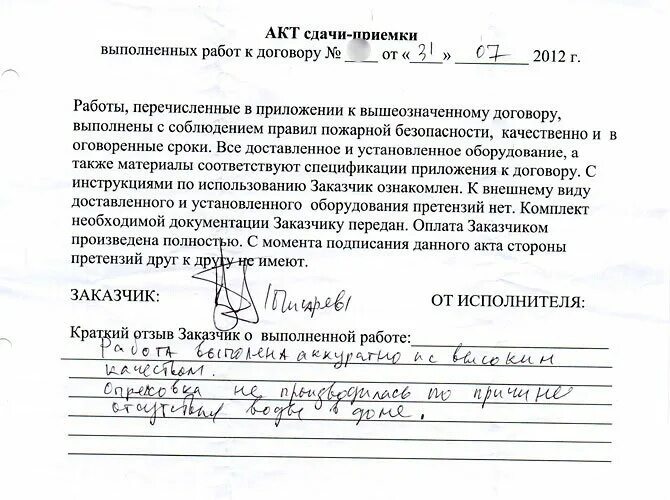 АКТ сдачи-приемки
выполненных работ к договору № ____ от «31» 07 2012 г.
Работы, перечисленные в приложении к вышеозначенному договору,
выполнены с соблюдением правил пожарной безопасности, качественно и в
оговоренные сроки. Все доставленное и установленное оборудование, а
также материалы соответствуют спецификации приложения к договору. С
инструкциями по использованию Заказчик ознакомлен. К внешнему виду
доставленного и установленного оборудования претензий нет. Комплект
необходимой документации Заказчику передан. Оплата Заказчиком
произведена полностью. С момента подписания данного акта стороны
претензий друг к другу не имеют.
ЗАКАЗЧИК: /Писарев/ ОТ ИСПОЛНИТЕЛЯ:
Краткий отзыв Заказчик о выполненной работе:
Работа выполена аккуратно и с высоким
качеством.
Опресовка не производилась по причине
отсутствия воды в доме.